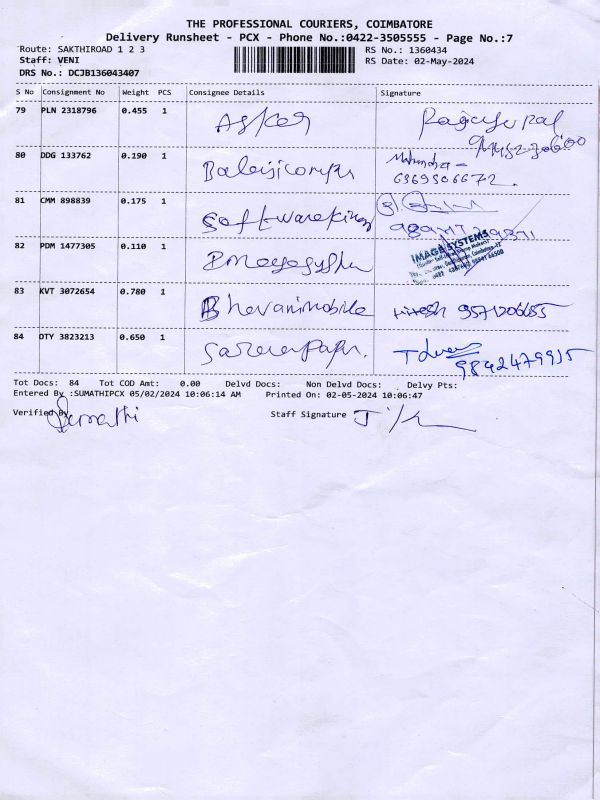 THE PROFESSIONAL COURIERS, COIMBATORE
Delivery Runsheet - PCX - Phone No.:0422-3505555 - Page No.:7
Route: SAKTHIROAD 1 2 3 RS No.: 1360434
Staff: VENI RS Date: 02-May-2024
DRS No.: DCJB136043407
S No Consignment No Weight PCS Consignee Details Signature
79 PLN 2318796 0.455 1
80 DDG 133762 0.190 1 Mahendra - 
6369306672.
81 CMM 898839 0.175 1 Softwareking
82 PDM 1477305 0.110 1 IMAGE SYSTEMS
83 KVT 3072654 0.780 1 Bhavanimobile Hitesh 9571206655
84 DTY 3823213 0.650 1 9842479915
Tot Docs: 84 Tot COD Amt: 0.00 Delvd Docs: Non Delvd Docs: Delvy Pts:
Entered By :SUMATHIPCX 05/02/2024 10:06:14 AM Printed On: 02-05-2024 10:06:47
Verified By Sumathi Staff Signature